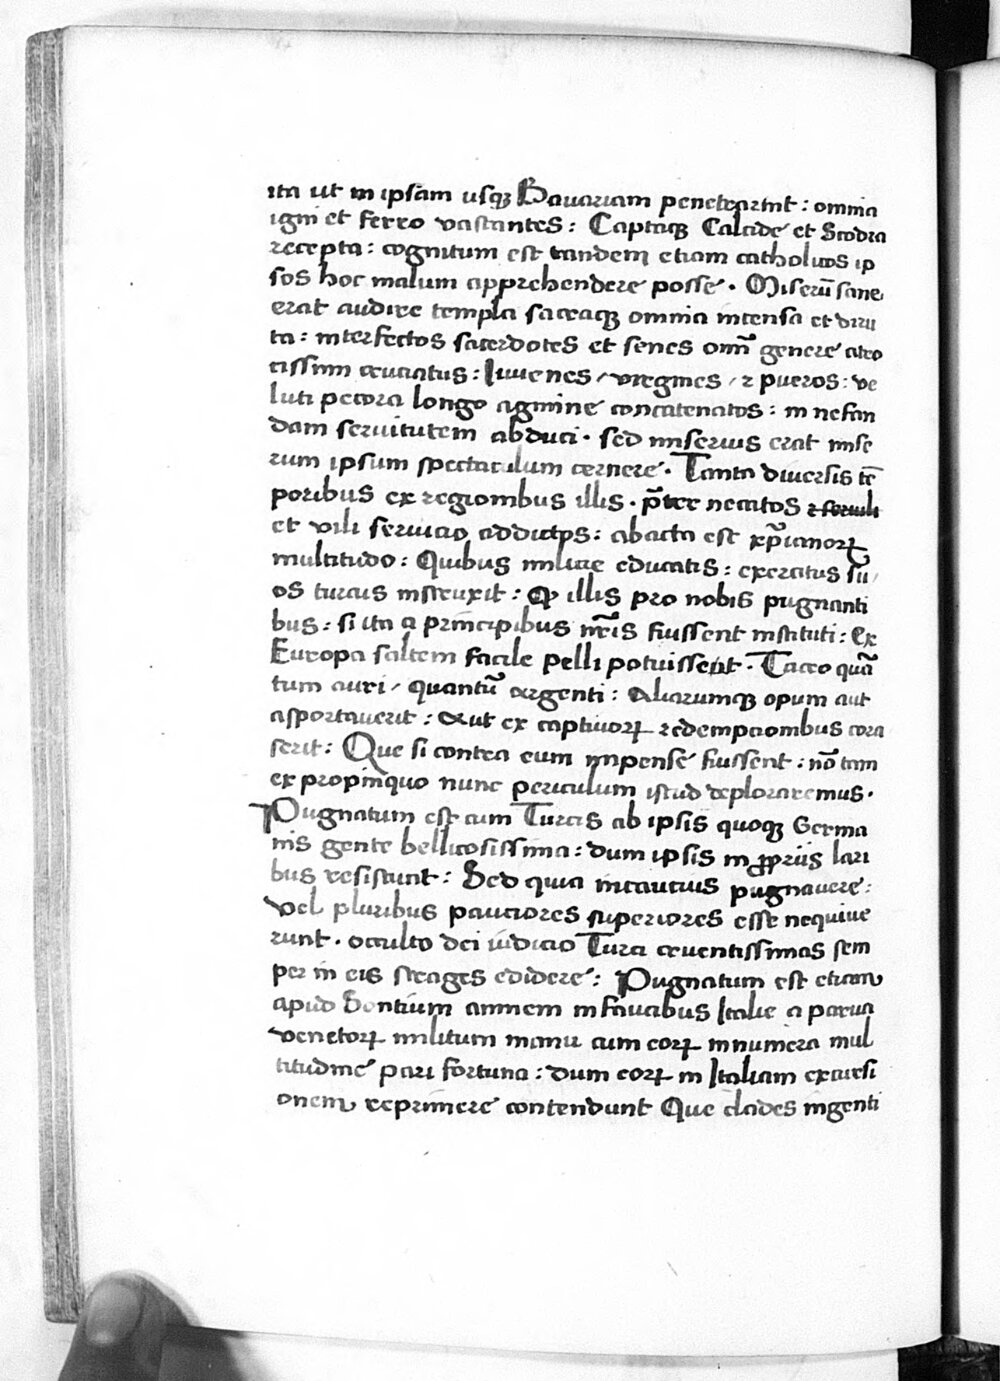 ita ut in ipsam usqꝫ Bauariam penetrarint : omnia
igni et ferro vastantes : Captaqꝫ Calcide et Scodra
recepta : cognitum est tandem etiam catholicos ip
sos hoc malum apprehendere posse . Miserū sane
erat audire templa sacraqꝫ omnia incensa et diru
ta : interfectos sacerdotes et senes omī genere atro
cissimi cruciatus : Iuuenes / virgines / ⁊ pueros : ve
luti pecora longo agmine concatenatos : in nefan
dam seruitutem abduci . sed miserius erat mise
rum ipsum spectaculum cernere . Tanta diuersis tē
poribus ex regionibus illis . p̄ter necatos ⁊ seruili
et vili seruicio addictos : abacta est xp̄ianoꝝ
multitudo : Quibus milicie educatis : exercitus su
os turcus instruxit : Qꝫ illis pro nobis pugnanti
bus : si ita a principibus nr̄is fuissent instituti : Ex
Europa saltem facile pelli potuissent . Taceo quā
tum auri / quantū argenti : Aliarumqꝫ opum aut
asportauerit : Aut ex captiuoꝝ redempcionibus cora
serit : Que si contra eum impense fuissent : nō tam
ex propinquo nunc periculum istud deploraremus .
Pugnatum est cum Turcis ab ipsis quoqꝫ Germa
nis gente bellicosissima : dum ipsis in ꝓpriis lari
bus resistunt : Sed quia incautius pugnauere :
vel pluribus pauciores superiores esse nequiue
runt . occulto dei iudicio Turci cruentissimas sem
per in eis strages edidere : Pugnatum est etiam
apud Sontium amnem in faucibus Italie a parua
venetoꝝ militum manu cum eoꝝ innumera mul
titudine pari fortuna : dum eoꝝ in Italiam excursi
onem reprimere contendunt Que clades ingenti